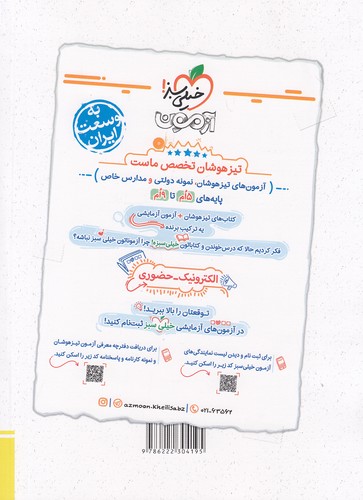 خیلی سبز!
آزمون
به
وسعت
ایران
تیزهوشان تخصص ماست
( آزمون‌های تیزهوشان، نمونه دولتی و مدارس خاص )
پایه‌های ۵اُم تا ۹اُم
کتاب‌های تیزهوشان + آزمون آزمایشی
یه ترکیب برنده
فکر کردیم حالا که درس‌خوندن و کتاباتون خیلی سبزه؛ چرا آزموناتون خیلی سبز نباشه؟
الکترونیک-حضوری
توقعتان را بالا ببرید!
در آزمون‌های آزمایشی خیلی سبز ثبت‌نام کنید!
برای ثبت نام و دیدن لیست نمایندگی‌های
آزمون خیلی‌سبز کد زیر را اسکن کنید.
برای دریافت دفترچه معرفی آزمون تیزهوشان
و نمونه کارنامه و پاسخنامه کد زیر را اسکن کنید.
azmoon.kheiliSabz
۰۲۱-۶۳۵۶۲
9 786222 304195